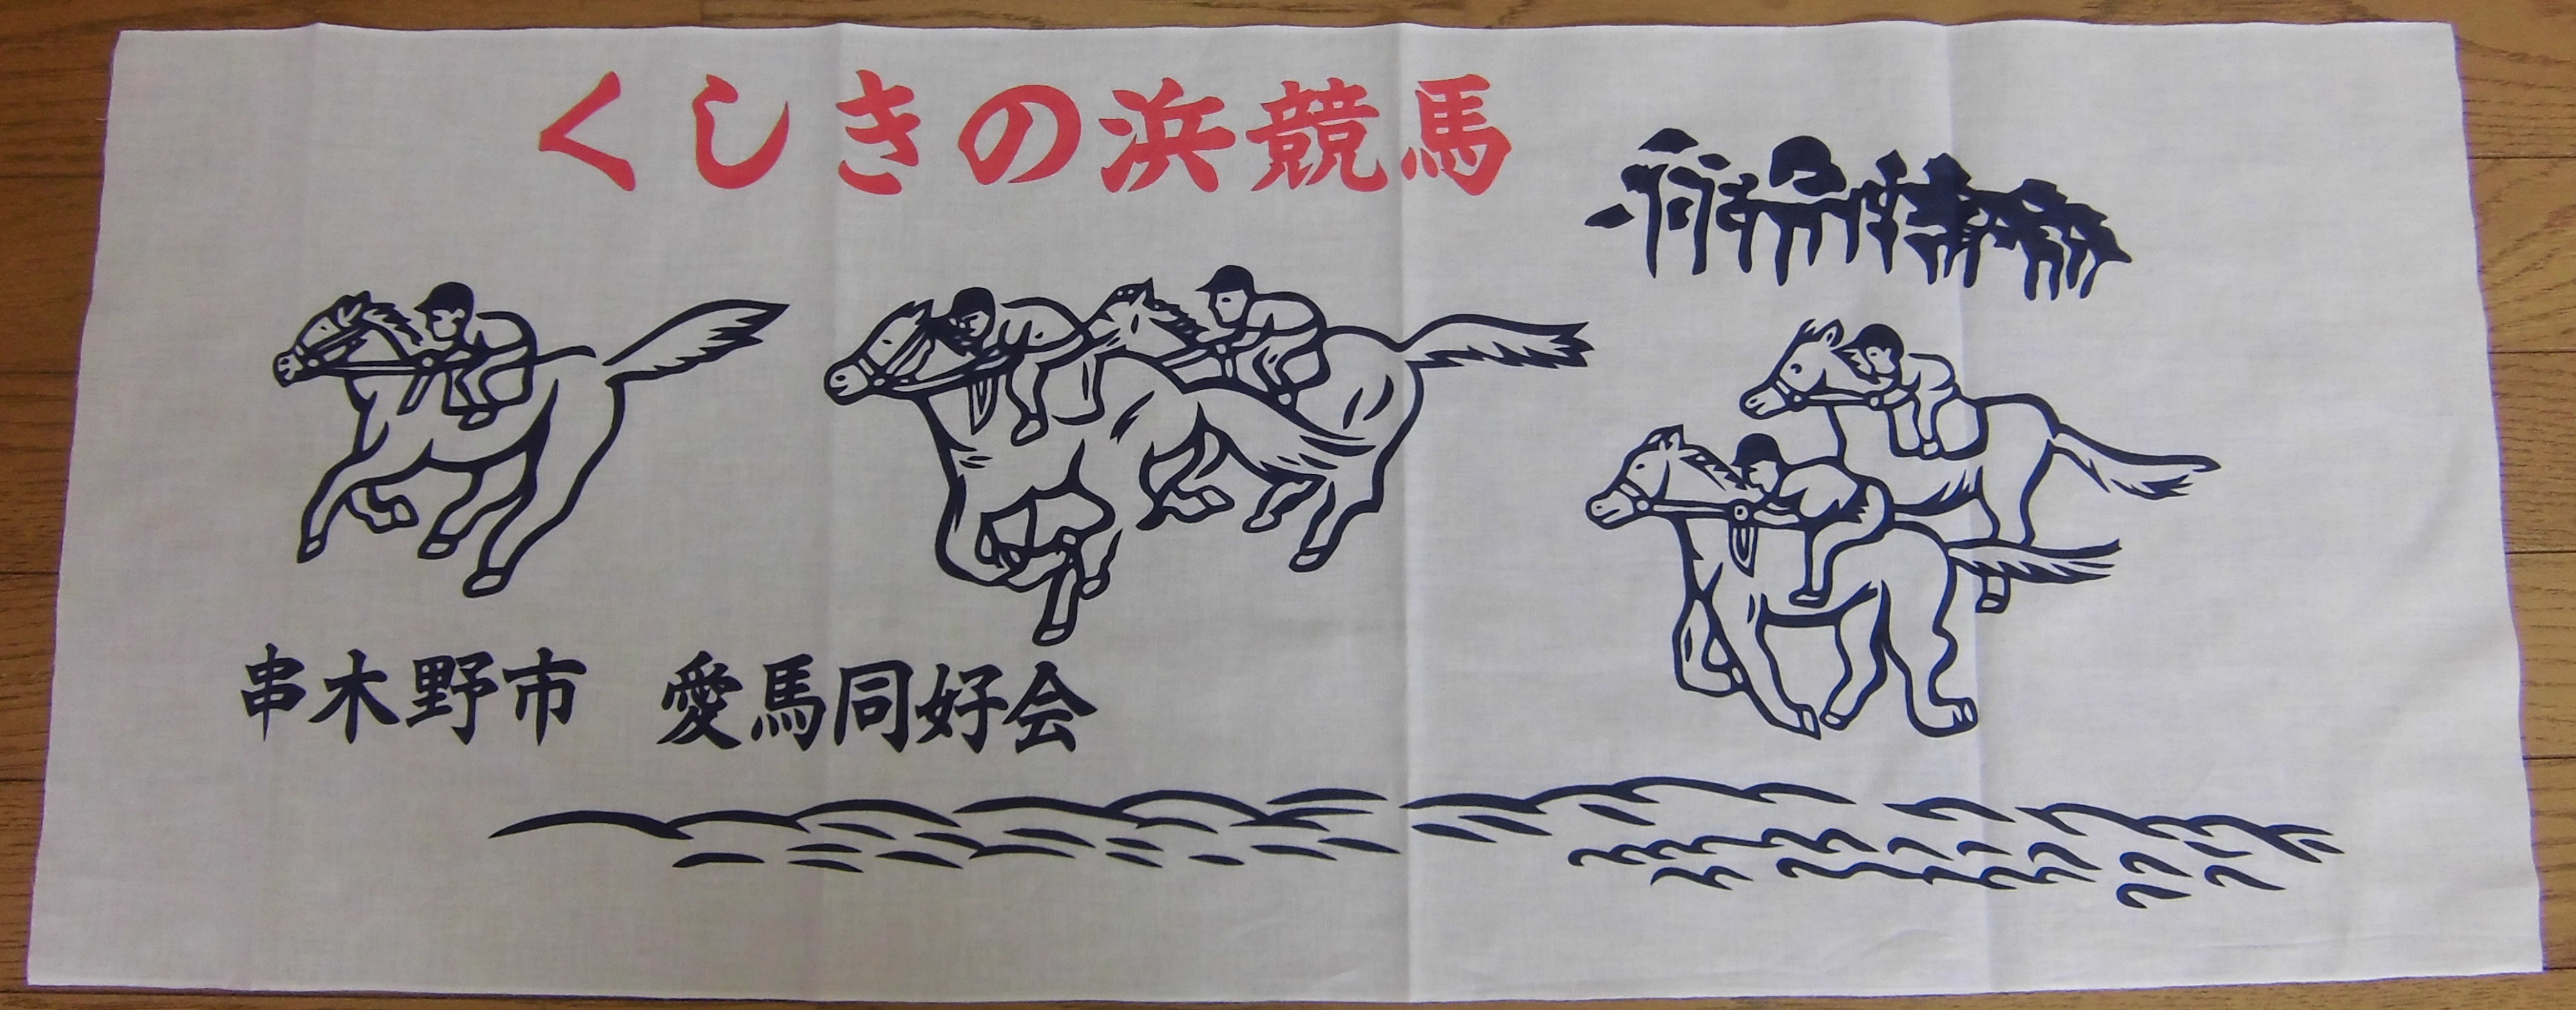 くしきの浜競馬
串木野市 愛馬同好会